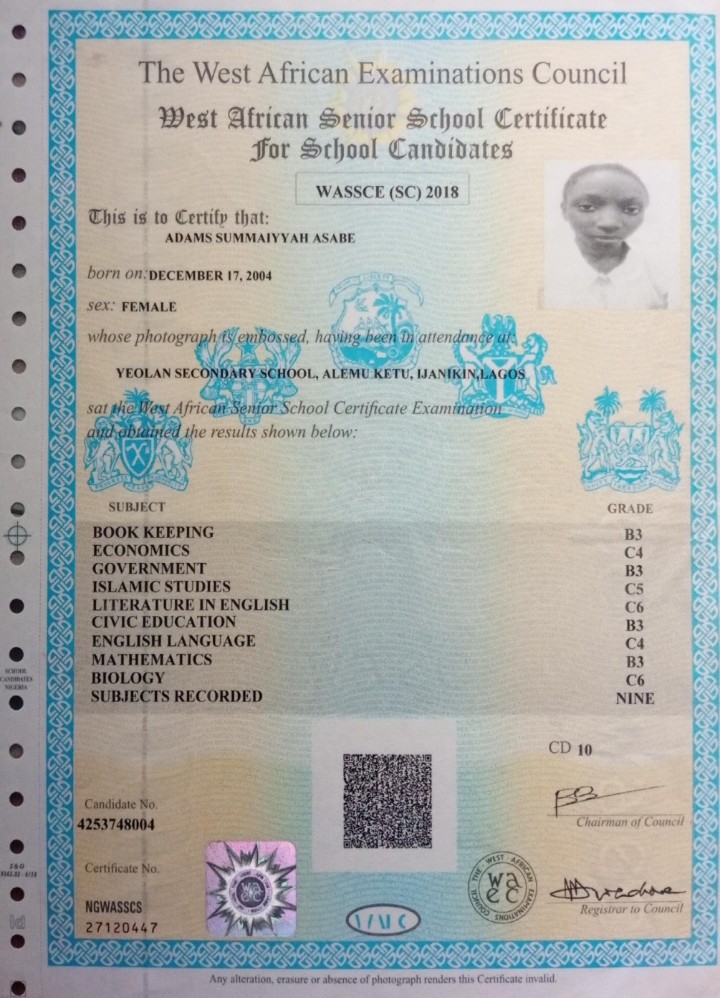 The West African Examinations Council
West African Senior School Certificate
For School Candidates
WASSCE (SC) 2018
This is to Certify that:
ADAMS SUMMAIYYAH ASABE
born on: DECEMBER 17, 2004
sex: FEMALE
whose photograph is embossed, having been in attendance at:
YEOLAN SECONDARY SCHOOL, ALEMU KETU, IJANIKIN,LAGOS
sat the West African Senior School Certificate Examination
and obtained the results shown below:
SUBJECT GRADE
BOOK KEEPING B3
ECONOMICS C4
GOVERNMENT B3
ISLAMIC STUDIES C5
LITERATURE IN ENGLISH C6
CIVIC EDUCATION B3
ENGLISH LANGUAGE C4
MATHEMATICS B3
BIOLOGY C6
SUBJECTS RECORDED NINE
SCHOOL
CANDIDATES
NIGERIA
CD 10
Candidate No.
4253748004
Chairman of Council
Certificate No.
NGWASSCS
27120447
THE WEST AFRICAN EXAMINATIONS COUNCIL
waec
Registrar to Council
Any alteration, erasure or absence of photograph renders this Certificate invalid.